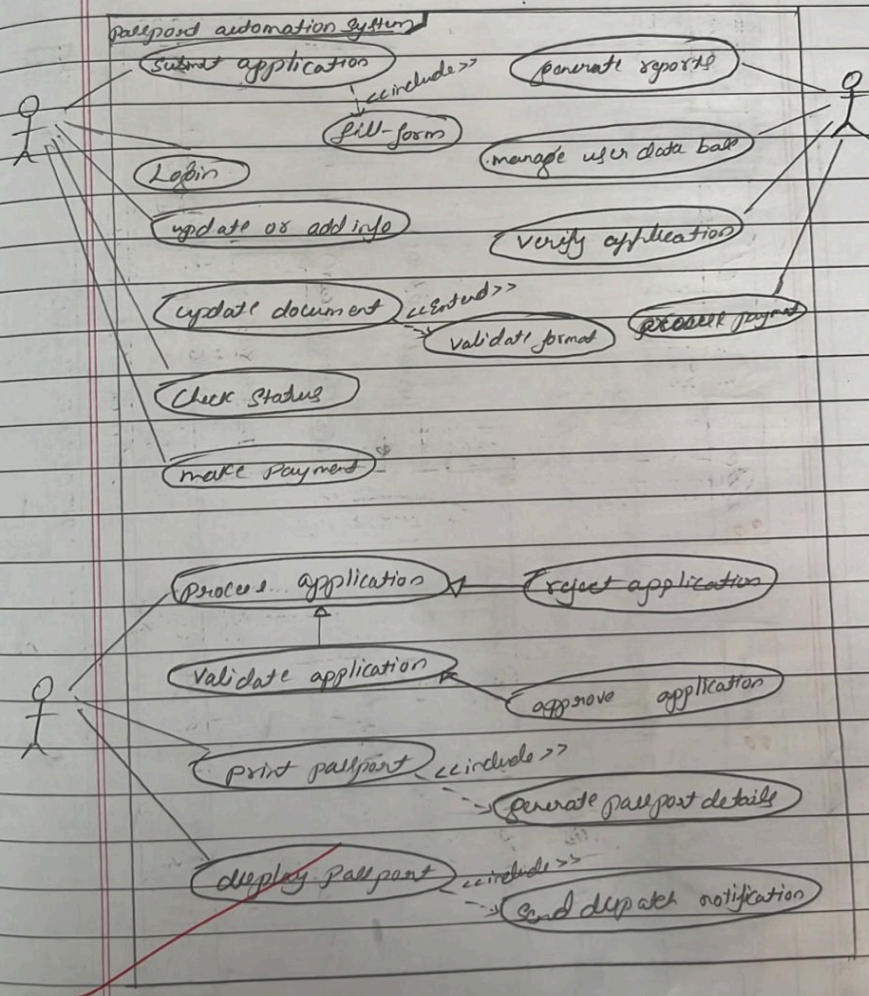 passport automation system
submit application
<<include>>
generate reports
fill-form
manage user data base
Login
update or add info
verify application
update document
<<Extend>>
validate format
payment
Check Status
make Payment
process application
reject application
validate application
approve application
print passport
<<include>>
generate passport details
passport
<<include>>
send dispatch notification